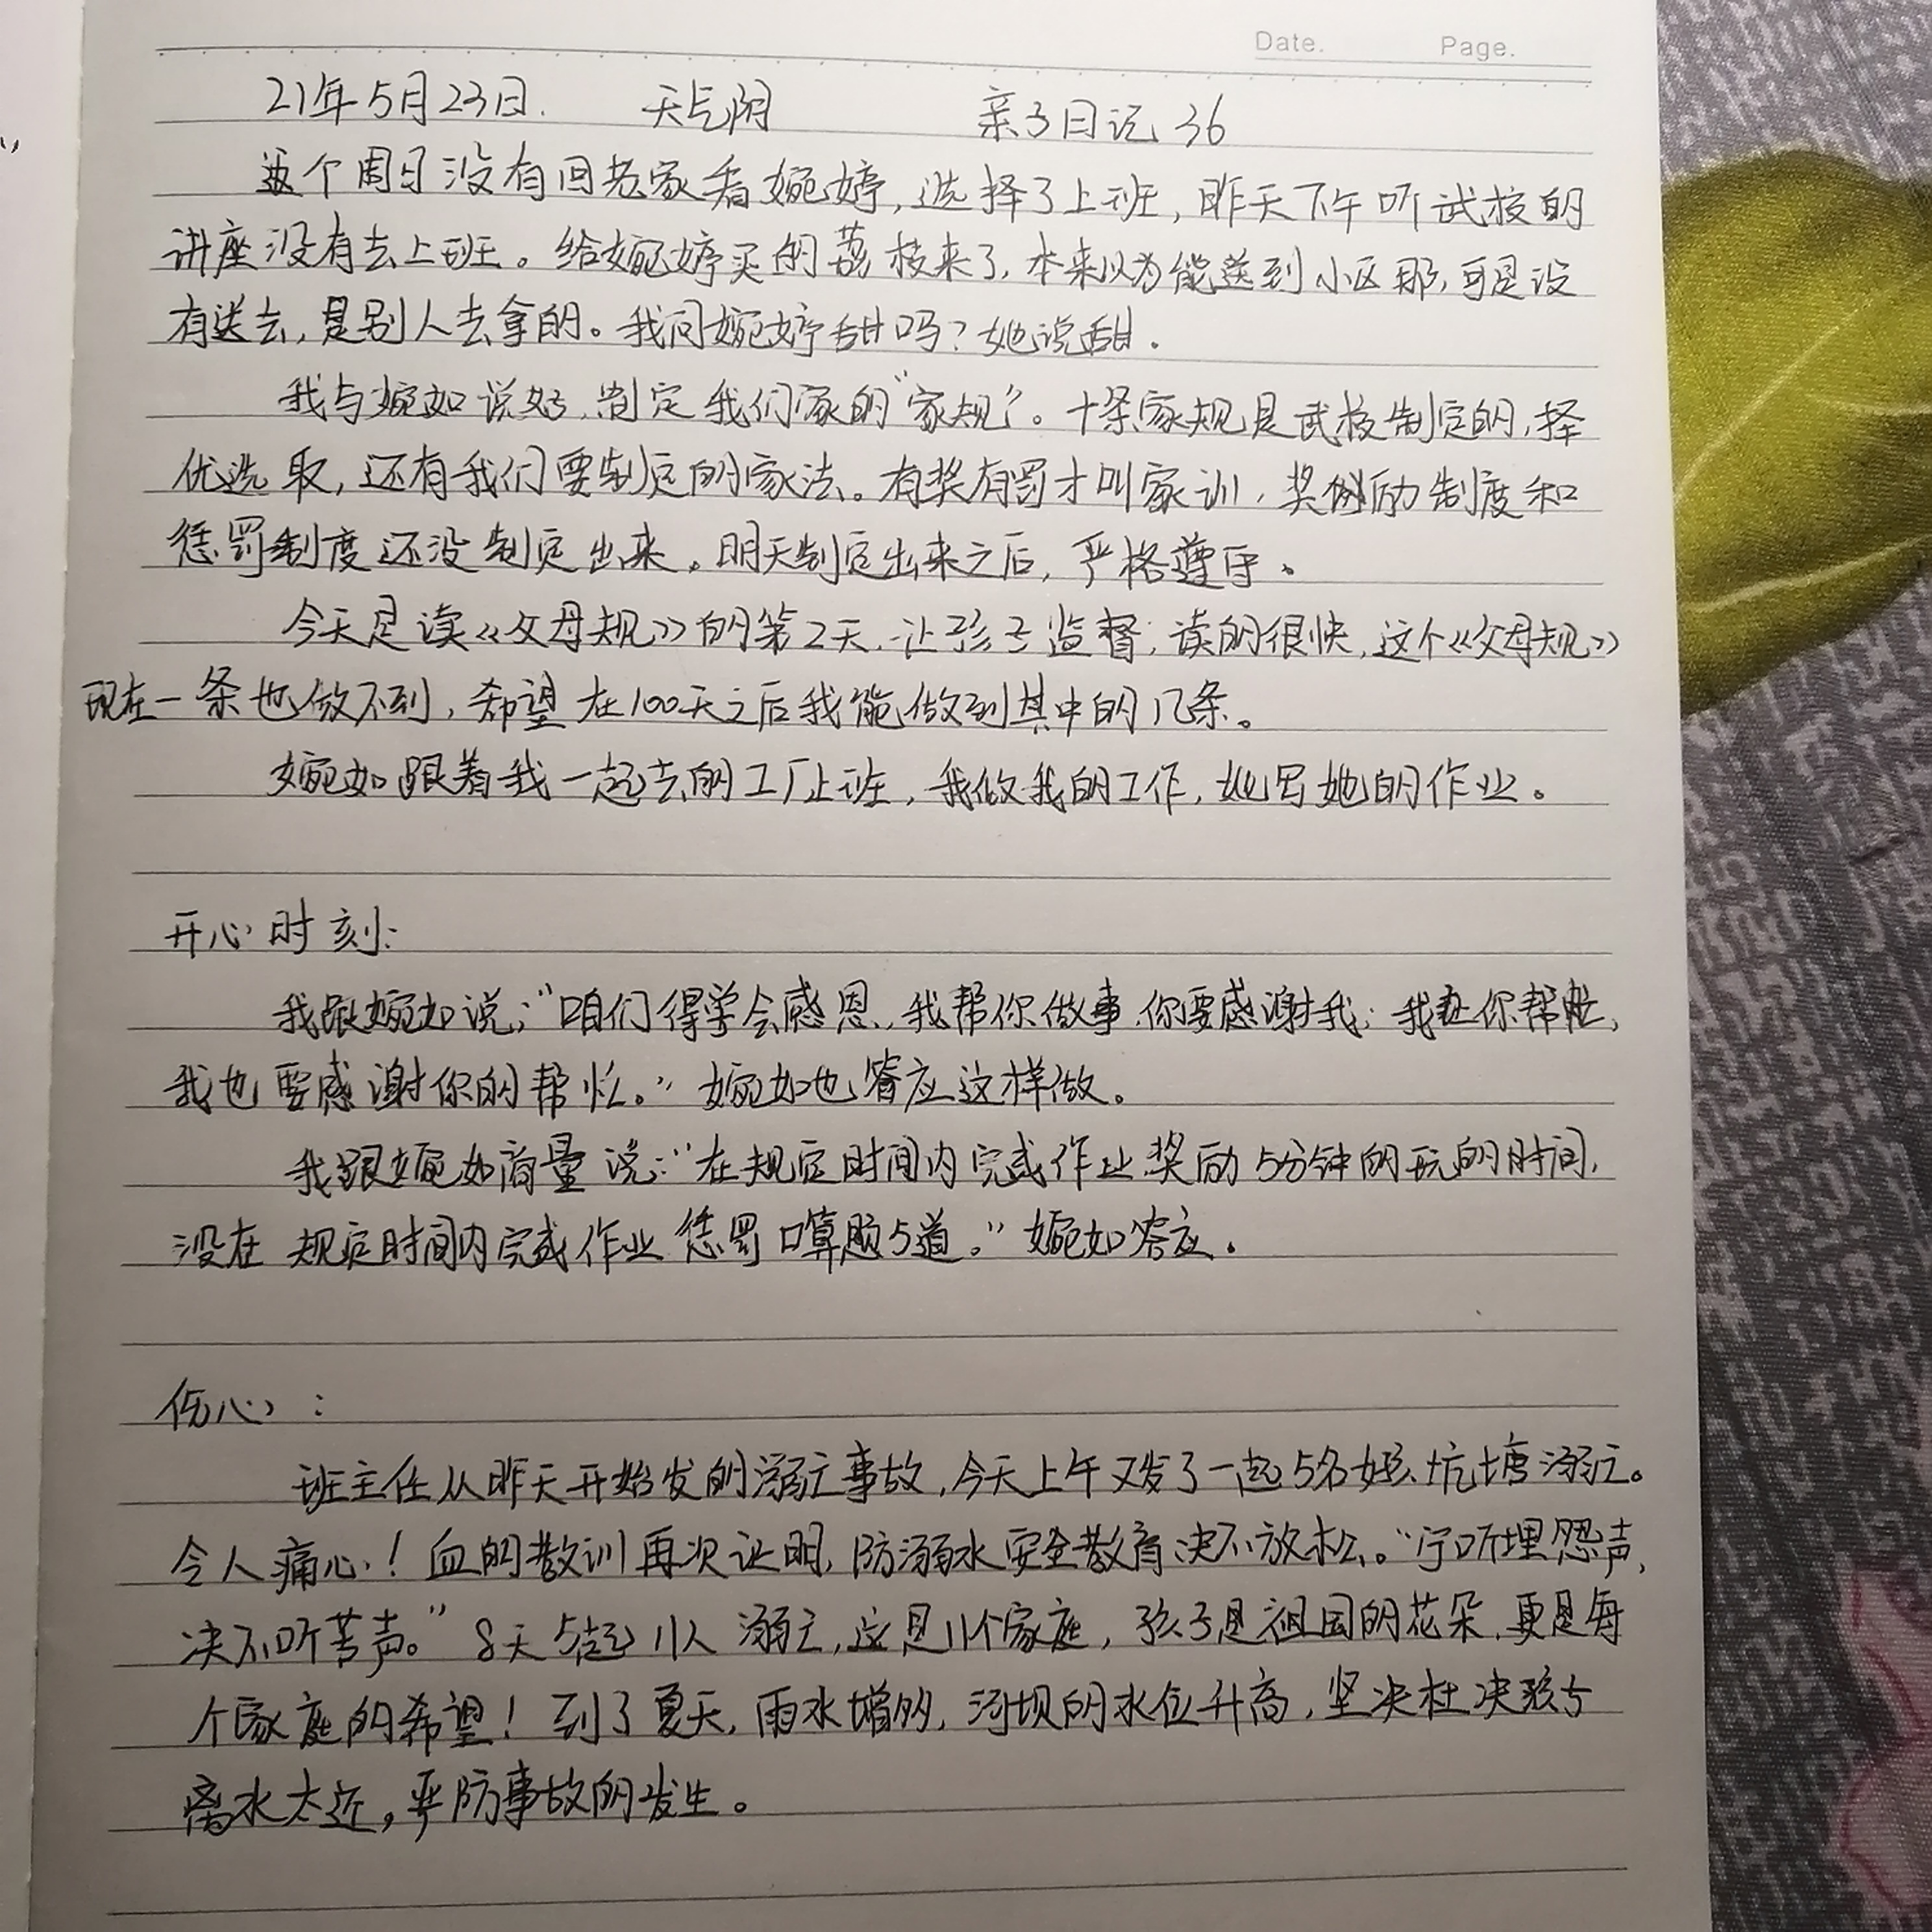 Date. Page.
21年5月23日. 天气阴 亲子日记 36
这个周日没有回老家看婉婷,选择了上班,昨天下午听武校的
讲座没有去上班。给婉婷买的荔枝来了,本来以为能送到小区那,可是没
有送去,是别人去拿的。我问婉婷甜吗?她说甜.
我与婉如说好,制定我们家的“家规”。十条家规是武校制定的,择
优选取,还有我们要制定的家法。有奖有罚才叫家训,奖励制度和
惩罚制度还没制定出来。明天制定出来之后,严格遵守。
今天是读《父母规》的第2天,让孩子监督,读的很快,这个《父母规》
现在一条也做不到,希望在100天之后我能做到其中的几条。
婉如跟着我一起去的工厂上班,我做我的工作,她写她的作业。
开心时刻:
我跟婉如说:“咱们得学会感恩,我帮你做事,你要感谢我;我让你帮忙,
我也要感谢你的帮忙。”婉如也答应这样做。
我跟婉如商量说:“在规定时间内完成作业奖励5分钟的玩的时间,
没在规定时间内完成作业惩罚口算题5道。”婉如答应.
伤心:
班主任从昨天开始发的溺亡事故,今天上午又发了一起5名女孩坑塘溺亡。
令人痛心!血的教训再次证明,防溺水安全教育决不放松。“宁听埋怨声,
决不听苦声。”8天5起11人溺亡,这是11个家庭,孩子是祖国的花朵,更是每
个家庭的希望!到了夏天,雨水增多,河坝的水位升高,坚决杜决孩子
离水太近,严防事故的发生。